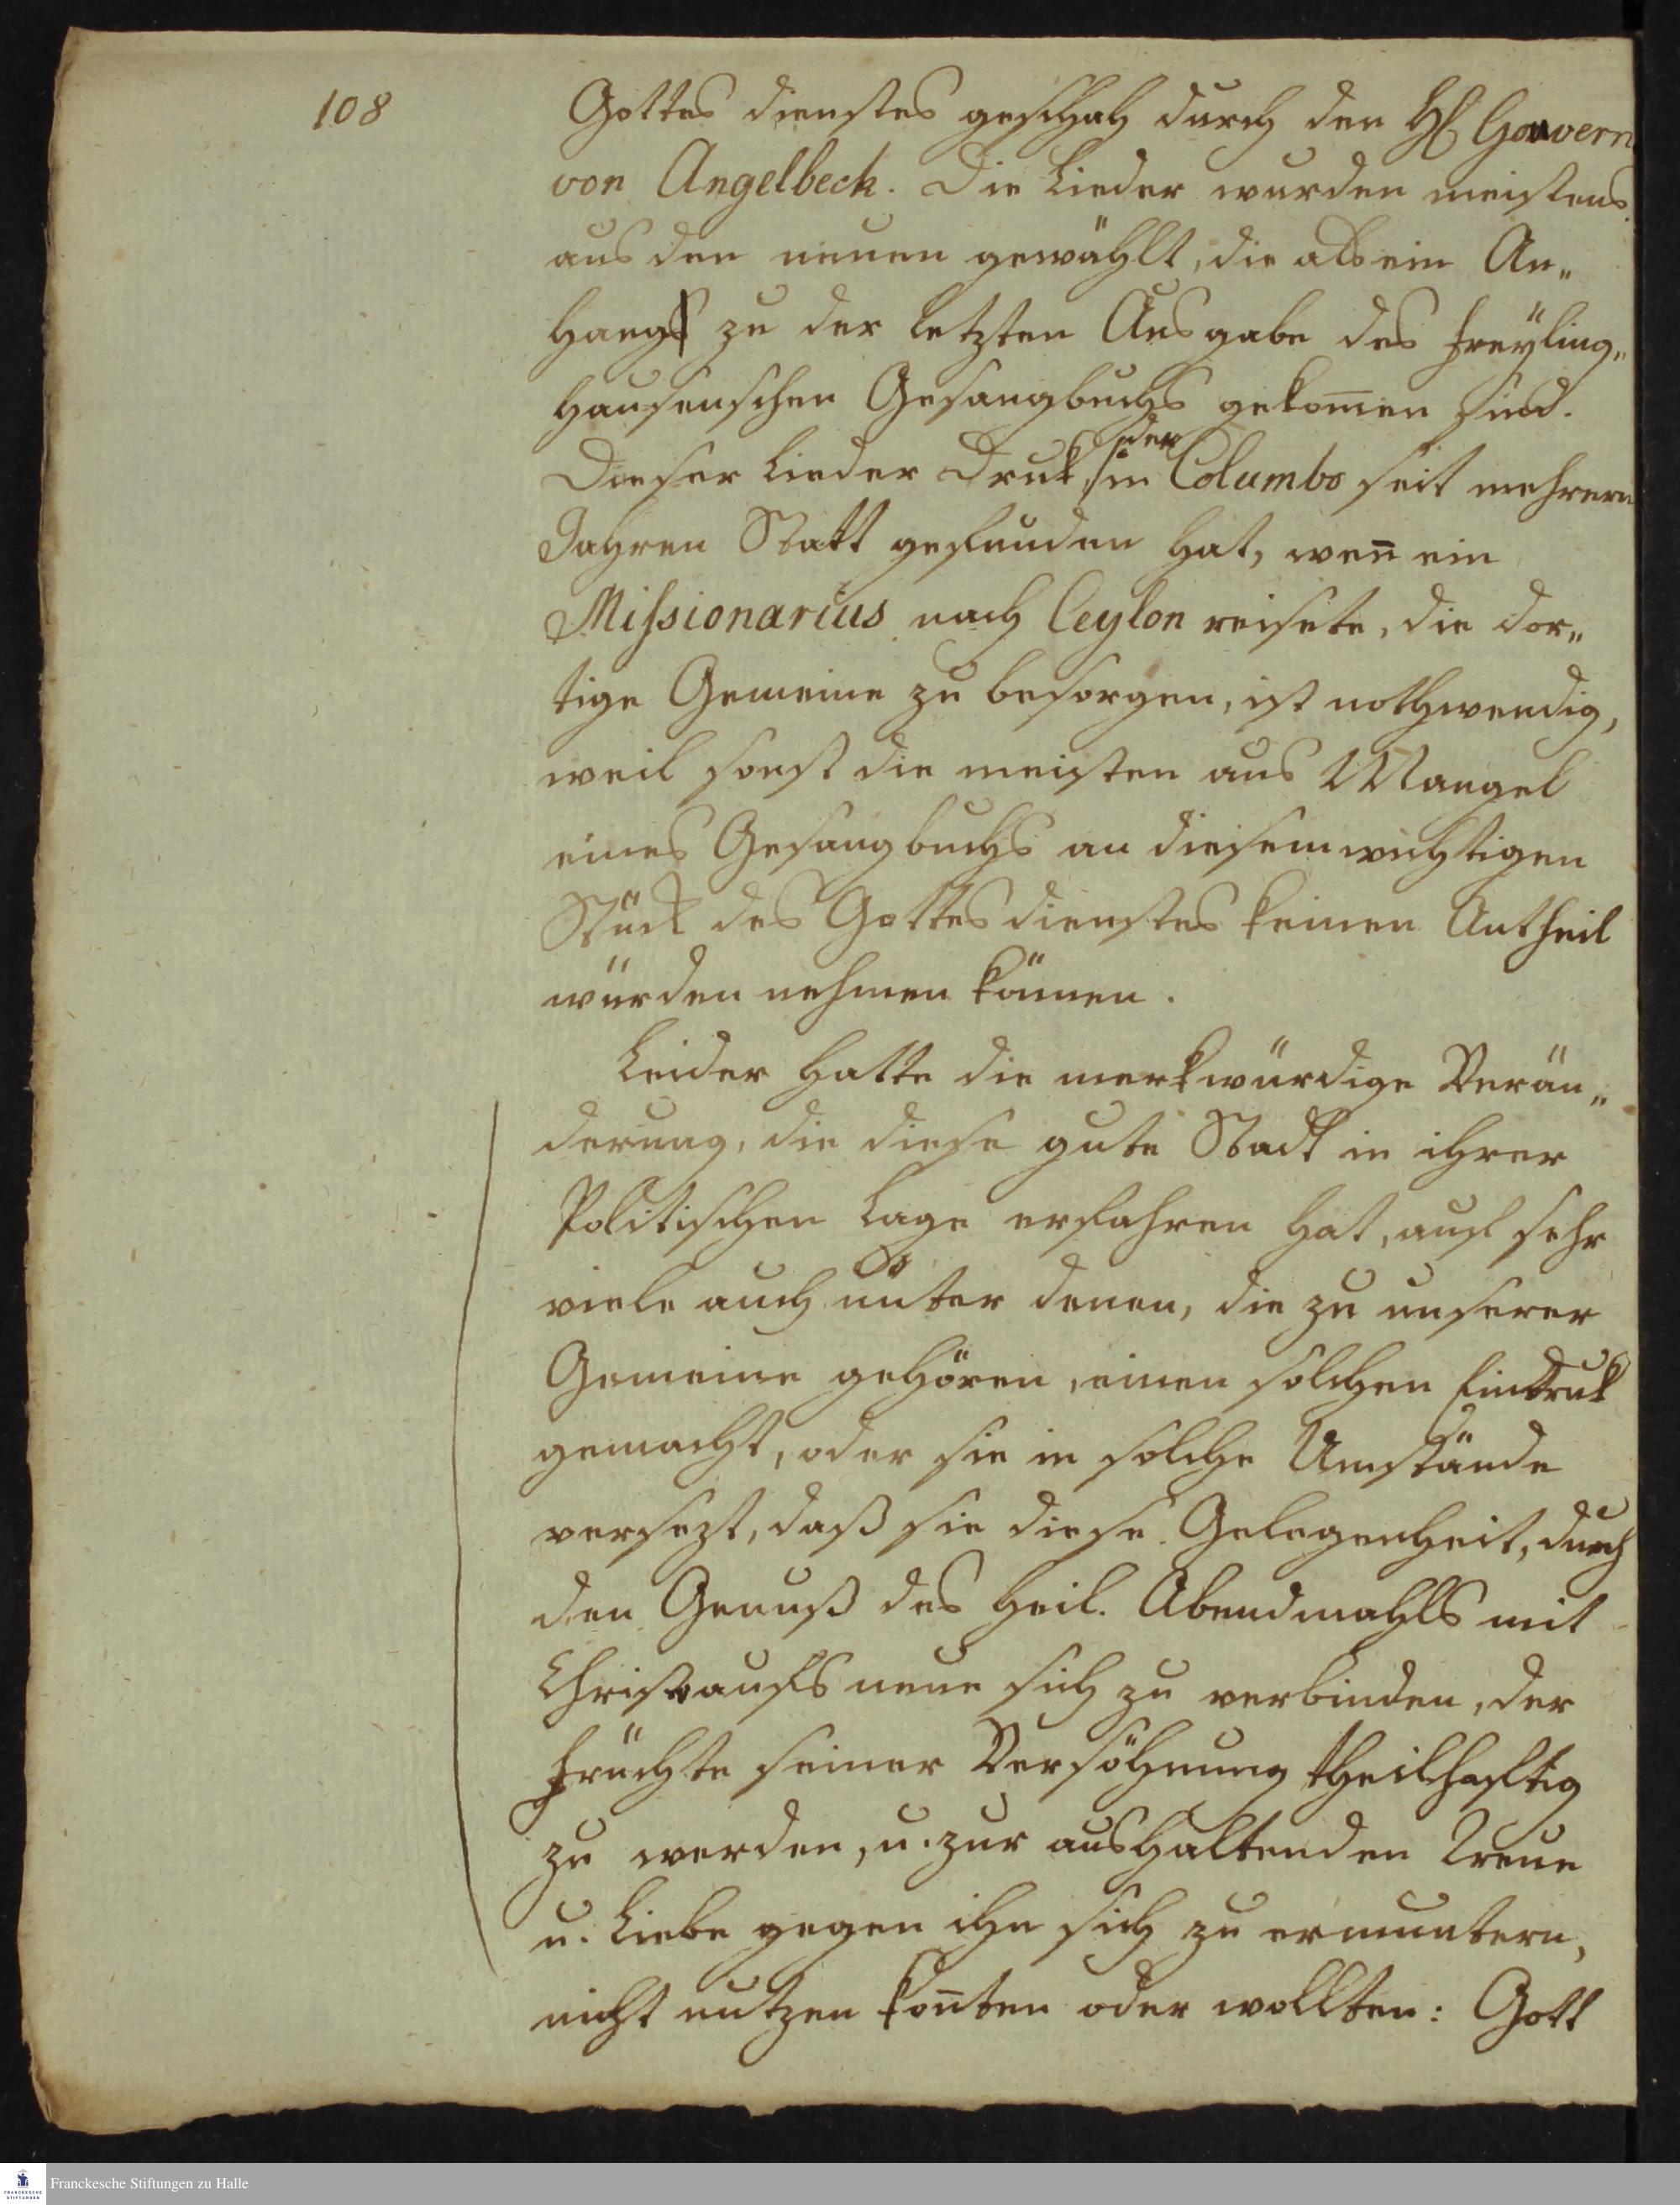 108
Gottes dienstes geschah durch den H. Gouvern
von Angelbeck. Die Lieder wurden meistens
aus den neuen gewählt, die als ein An„
hang zu der letzten Ausgabe des Freÿling„
hausenschen Gesangbuchs gekom̅en sind.
Dieser Lieder Druk, der in Columbo seit mehrern
Jahren Statt gefunden hat, wen̅ ein
Missionarius nach Ceylon reisete, die dor„
tige Gemeine zu besorgen, ist nothwendig,
weil sonst die meisten aus Mangel
eines Gesangbuchs an diesem wichtigen
Stück des Gottesdienstes keinen Antheil
würden nehmen können.
Leider hatte die merkwürdige Verän„
derung, die diese gute Stadt in ihrer
Politischen Lage erfahren hat, auf sehr
viele auch unter denen, die zu unserer
Gemeine gehören, einen solchen Eindruk
gemacht, oder sie in solche Umstände
versezt, daß sie diese Gelegenheit, durch
den Genuß des Heil. Abendmahls mit
Christo aufs neue sich zu verbinden, der
Früchte seiner Versöhnung theilhaftig
zu werden, u. zur aushaltenden Treue
u. Liebe gegen ihn sich zu ermuntern,
nicht nutzen kon̅ten oder wollten: Gott
FRANCKESCHE STIFTUNGEN
Franckesche Stiftungen zu Halle